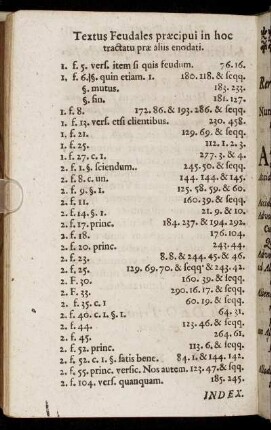 Textus Feudales præcipui in hoc
tractatu præ aliis enodati.
1. f. 5. vers. item si quis feudum. 76. 16.
1. f. 6.|§. quin etiam. 1. 180. 218. & seqq.
§. mutus. 183. 233.
§. fin. 181. 127.
1. f. 8. 172. 86. & 193. 286. & seqq.
1. f. 13. vers. etsi clientibus. 230. 458.
1. f. 21. 129. 69. & seqq.
1. f. 25. 112. 1. 2. 3.
1. f. 27. c. 1. 277. 3. & 4.
2. f. 1. §. sciendum.. 245. 50. & seqq.
2. f. 8. c. un. 144. 144. & 145.
2. f. 9. §. 1. 125. 58. 59. & 60.
2. f. 11. 160. 39. & seqq.
2. f. 14. §. 1. 21. 9. & 10.
2. f. 17. princ. 184. 237. & 194. 292.
2. f. 18. 176. 104.
2. f. 20. princ. 243. 44.
2. f. 23. 8. 8. & 244. 45. & 46.
2. f. 25. 129. 69. 70. & seqq. & 243. 42.
2. F. 30. 160. 39. & seqq.
2. F. 33. 290. 16. 17. & seqq.
2. f. 35. c. 1 60. 19. & seqq.
2. f. 40. c. 1. §. 1. 64. 31.
2. f. 44. 123. 46. & seqq.
2. f. 45. 264. 61.
2. f. 52. princ. 113. 6. & seqq.
2. f. 52. c. 1. §. satis bene. 84. 1. & 144. 142.
2. f. 55. princ. versic. Nos autem. 123. 47. & seqq.
2. f. 104. vers. quanquam. 185. 245.
INDEX.